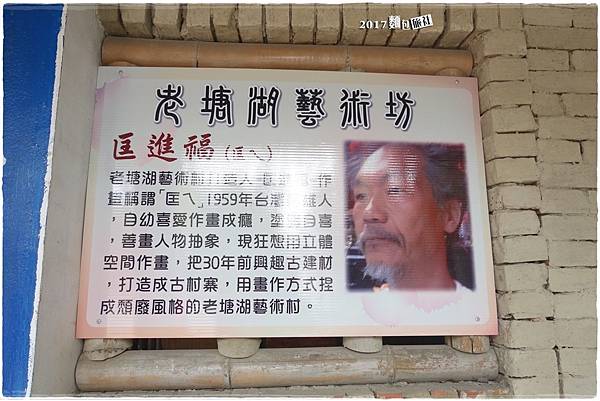 2017麵包旅社
老塘湖藝術坊
匡進福(匡ㄟ)
老塘湖藝術村打造人匡進福,作
畫稱謂「匡ㄟ」1959年台灣 雄人
,自幼喜愛作畫成癮,塗鴉自喜
,善畫人物抽象,現狂想用立體
空間作畫,把30年前興趣古建材
,打造成古村寨,用畫作方式捏
成頹廢風格的老塘湖藝術村。